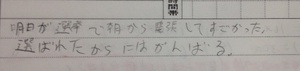 明日が選挙で朝から緊張してすごかった。
選ばれたからにはがんばる。